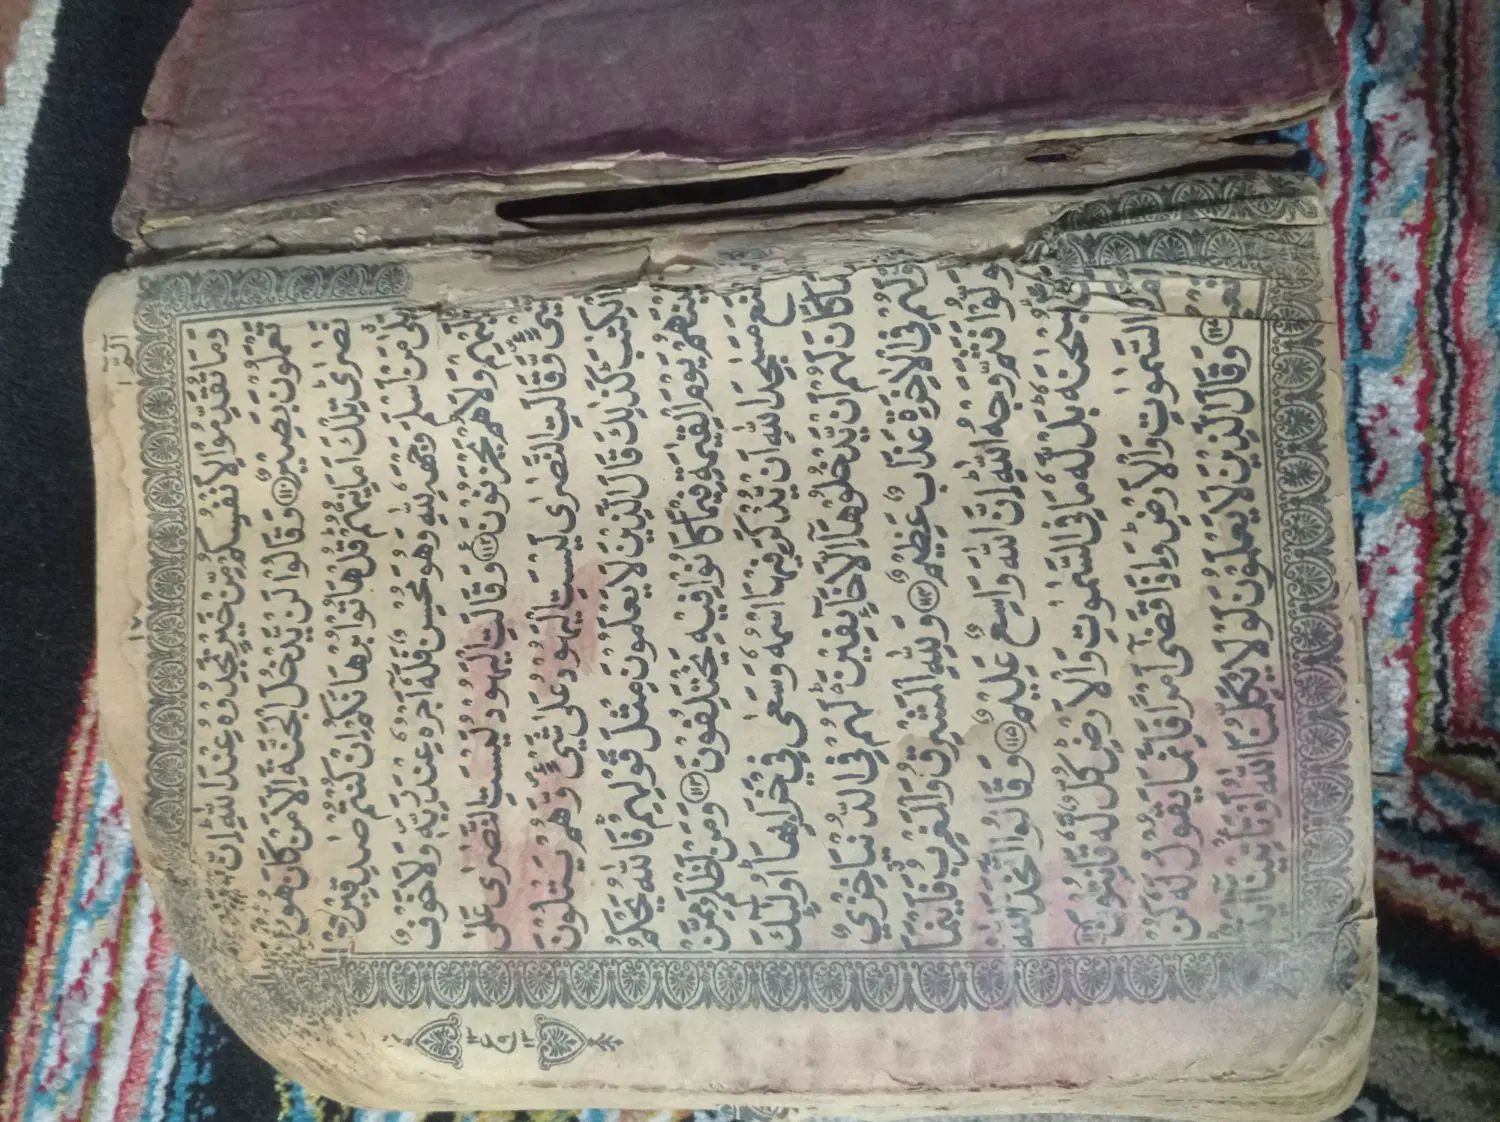 الٓمّٓ ١
١٧
وَمَا تُقَدِّمُوْا لِاَنْفُسِكُمْ مِّنْ خَيْرٍ تَجِدُوْهُ عِنْدَ اللّٰهِ اِنَّ
تَعْمَلُوْنَ بَصِيْرٌ ﴿١١٠﴾ وَقَالُوْا لَنْ يَّدْخُلَ الْجَنَّةَ اِلَّا مَنْ كَانَ هُوْدًا
نَصٰرٰى تِلْكَ اَمَانِيُّهُمْ قُلْ هَاتُوْا بُرْهَانَكُمْ اِنْ كُنْتُمْ صٰدِقِيْنَ
بَلٰى مَنْ اَسْلَمَ وَجْهَهٗ لِلّٰهِ وَهُوَ مُحْسِنٌ فَلَهٗٓ اَجْرُهٗ عِنْدَ رَبِّهٖ وَلَا خَوْفٌ
عَلَيْهِمْ وَلَا هُمْ يَحْزَنُوْنَ ﴿١١٢﴾ وَقَالَتِ الْيَهُوْدُ لَيْسَتِ النَّصٰرٰى عَلٰى
شَيْءٍ وَّقَالَتِ النَّصٰرٰى لَيْسَتِ الْيَهُوْدُ عَلٰى شَيْءٍ وَّهُمْ يَتْلُوْنَ
الْكِتٰبَ كَذٰلِكَ قَالَ الَّذِيْنَ لَا يَعْلَمُوْنَ مِثْلَ قَوْلِهِمْ فَاللّٰهُ يَحْكُمُ
بَيْنَهُمْ يَوْمَ الْقِيٰمَةِ فِيْمَا كَانُوْا فِيْهِ يَخْتَلِفُوْنَ ﴿١١٣﴾ وَمَنْ اَظْلَمُ مِمَّنْ
مَّنَعَ مَسٰجِدَ اللّٰهِ اَنْ يُّذْكَرَ فِيْهَا اسْمُهٗ وَسَعٰى فِيْ خَرَابِهَا اُولٰٓئِكَ
مَا كَانَ لَهُمْ اَنْ يَّدْخُلُوْهَآ اِلَّا خَآئِفِيْنَ لَهُمْ فِي الدُّنْيَا خِزْيٌ
وَّلَهُمْ فِي الْاٰخِرَةِ عَذَابٌ عَظِيْمٌ ﴿١١٤﴾ وَلِلّٰهِ الْمَشْرِقُ وَالْمَغْرِبُ فَاَيْنَمَا
تُوَلُّوْا فَثَمَّ وَجْهُ اللّٰهِ اِنَّ اللّٰهَ وَاسِعٌ عَلِيْمٌ ﴿١١٥﴾ وَقَالُوا اتَّخَذَ اللّٰهُ
سُبْحٰنَهٗ بَلْ لَّهٗ مَا فِي السَّمٰوٰتِ وَالْاَرْضِ كُلٌّ لَّهٗ قٰنِتُوْنَ
السَّمٰوٰتِ وَالْاَرْضِ وَاِذَا قَضٰٓى اَمْرًا فَاِنَّمَا يَقُوْلُ لَهٗ كُنْ
﴿١١٧﴾ وَقَالَ الَّذِيْنَ لَا يَعْلَمُوْنَ لَوْلَا يُكَلِّمُنَا اللّٰهُ اَوْ تَاْتِيْنَآ اٰيَةٌ
١٣
ع ٩
١٣